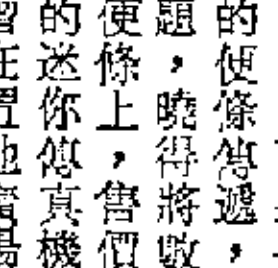 的便條傳遞，
題，曉得將數
便條上，售價
的迷你傳真機